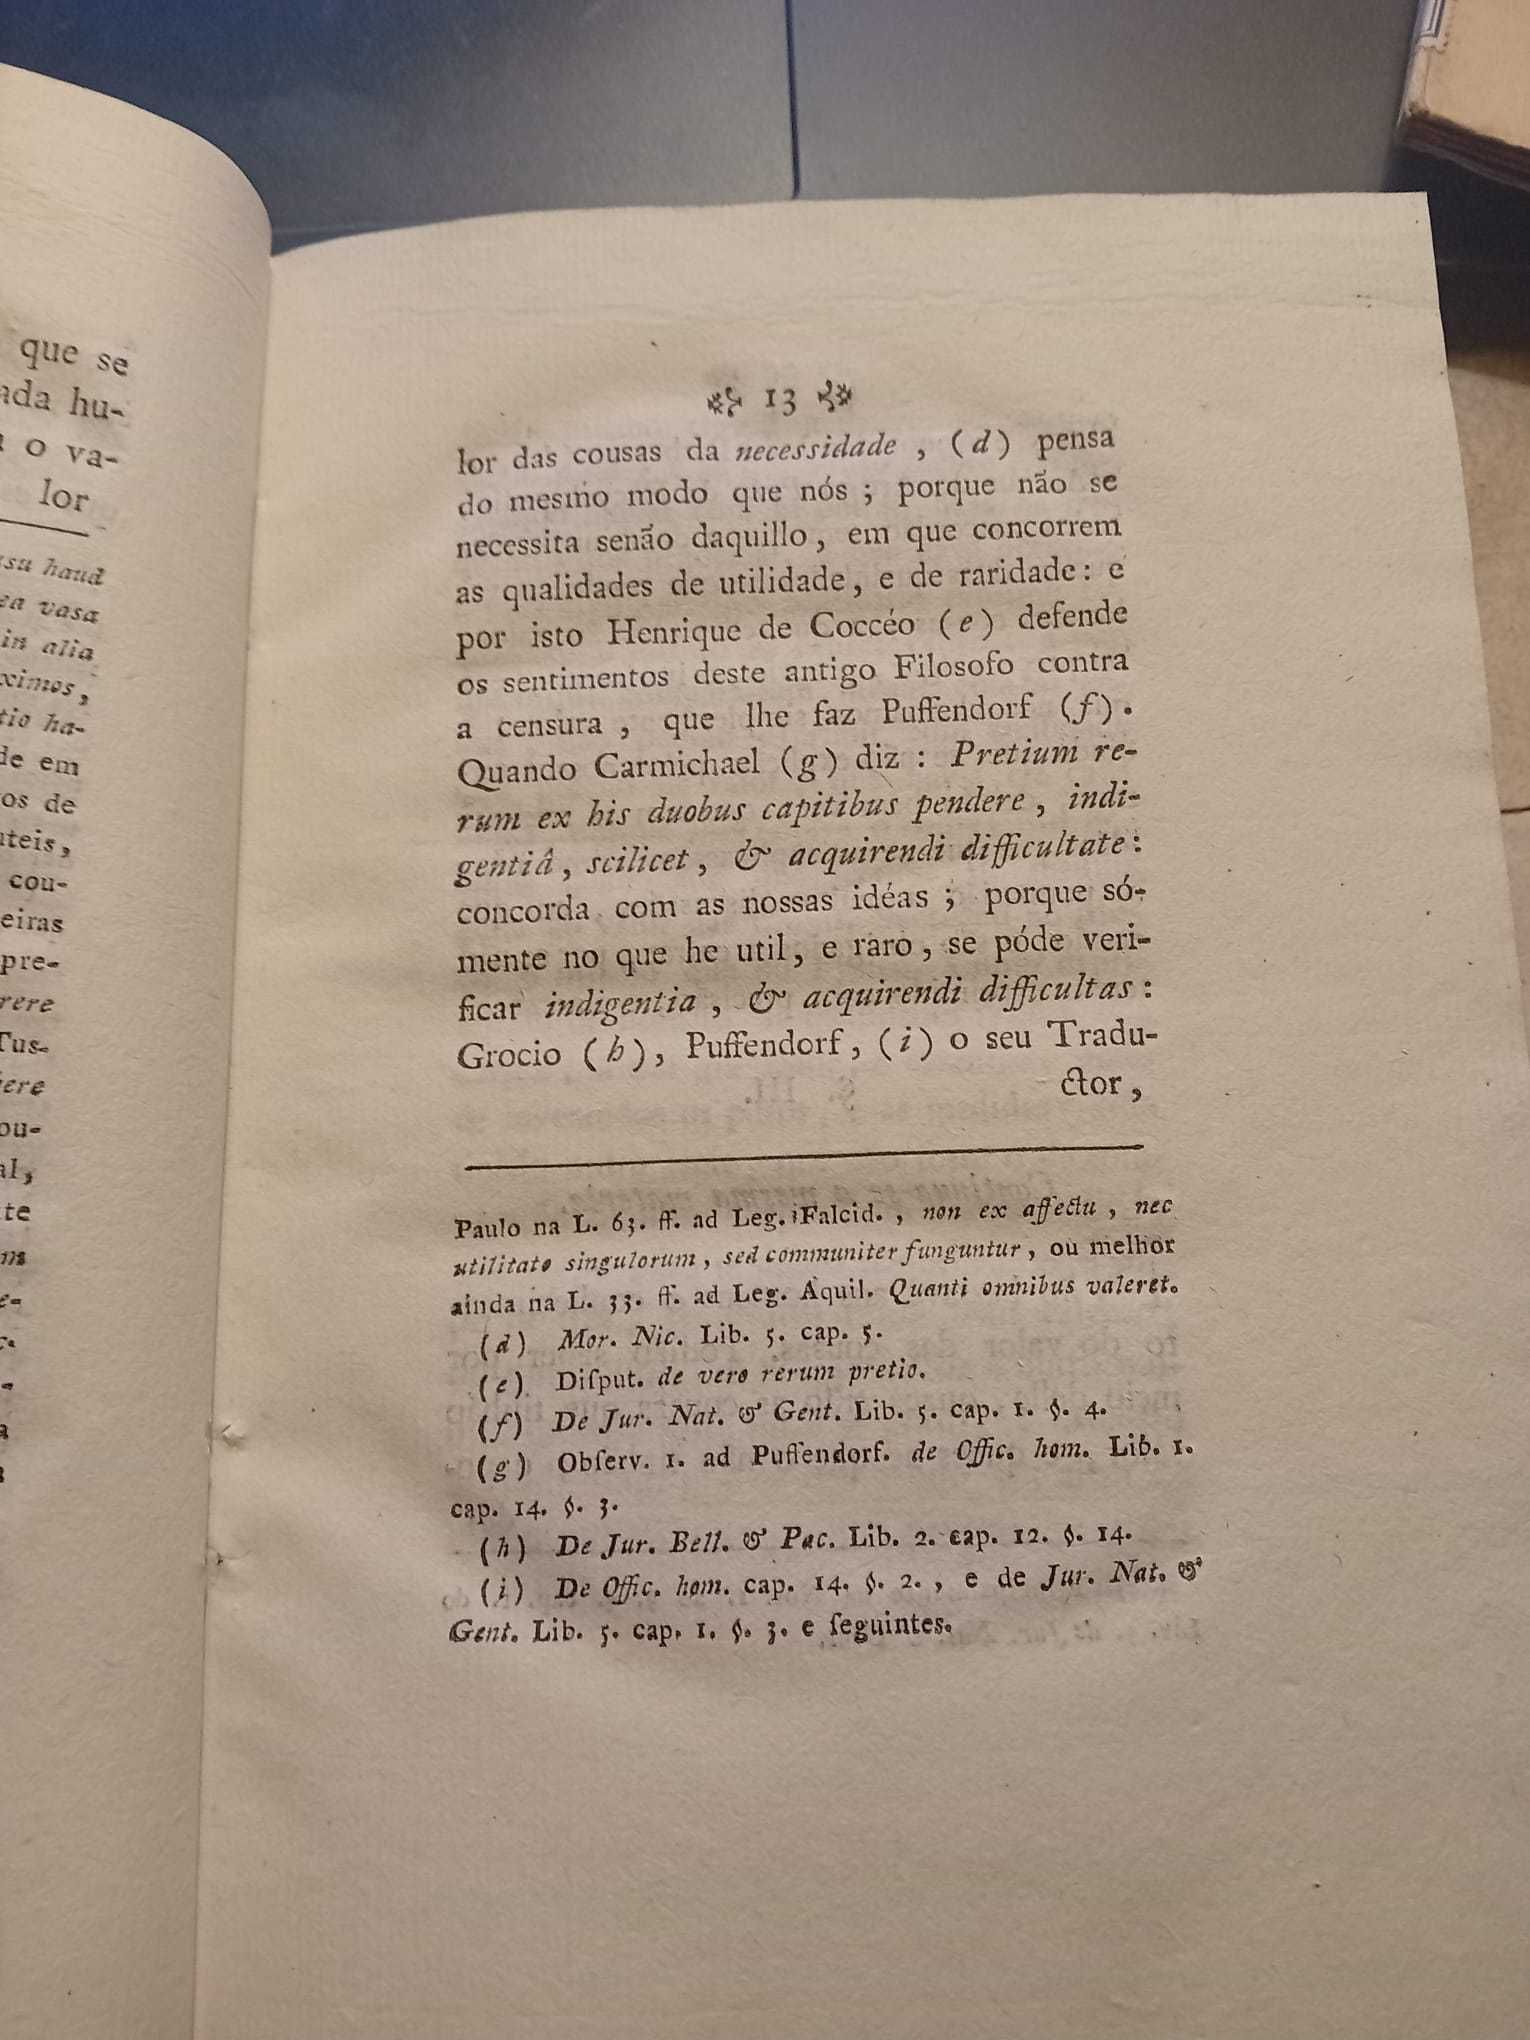 que se
hu-
o va-
lor
haud
vasa
in alia
de em
os de
cou-
pre-
13
lor das cousas da necessidade , (d) pensa
do mesmo modo que nós ; porque não se
necessita senão daquillo, em que concorrem
as qualidades de utilidade, e de raridade: e
por isto Henrique de Coccéo (e) defende
os sentimentos deste antigo Filosofo contra
a censura , que lhe faz Puffendorf (f).
Quando Carmichael (g) diz : Pretium re-
rum ex his duobus capitibus pendere , indi-
gentiâ, scilicet, & acquirendi difficultate:
concorda com as nossas idéas ; porque só-
mente no que he util, e raro, se póde veri-
ficar indigentia, & acquirendi difficultas:
Grocio (h), Puffendorf, (i) o seu Tradu-
ctor,
Paulo na L. 63. ff. ad Leg. Falcid., non ex affectu, nec
utilitate singulorum, sed communiter funguntur, ou melhor
ainda na L. 33. ff. ad Leg. Aquil. Quanti omnibus valeret.
(d) Mor. Nic. Lib. 5. cap. 5.
(e) Diſput. de vero rerum pretio.
(f) De Jur. Nat. & Gent. Lib. 5. cap. 1. §. 4.
(g) Obſerv. 1. ad Puffendorf. de Offic. hom. Lib. 1.
cap. 14. §. 3.
(h) De Jur. Bell. & Pac. Lib. 2. cap. 12. §. 14.
(i) De Offic. hom. cap. 14. §. 2., e de Jur. Nat. &
Gent. Lib. 5. cap. 1. §. 3. e ſeguintes.